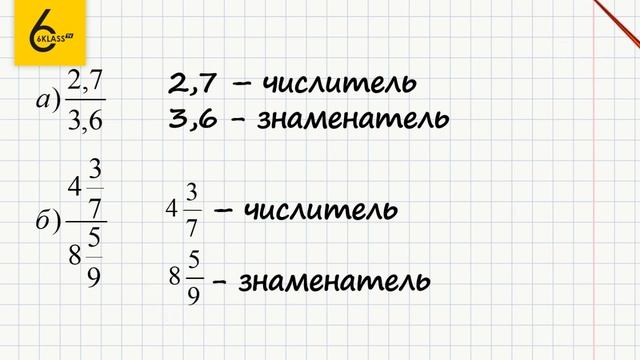 6KLASS TV
а) 2,7/3,6
2,7 – числитель
3,6 - знаменатель
б) 4 3/7 / 8 5/9
4 3/7 – числитель
8 5/9 - знаменатель